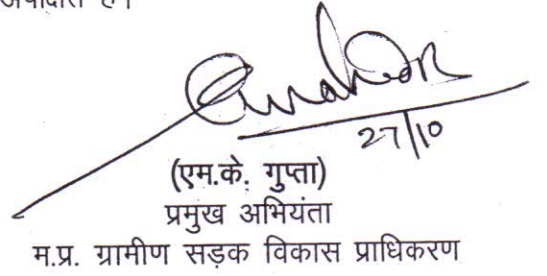 27/10
(एम.के. गुप्ता)
प्रमुख अभियंता
म.प्र. ग्रामीण सड़क विकास प्राधिकरण